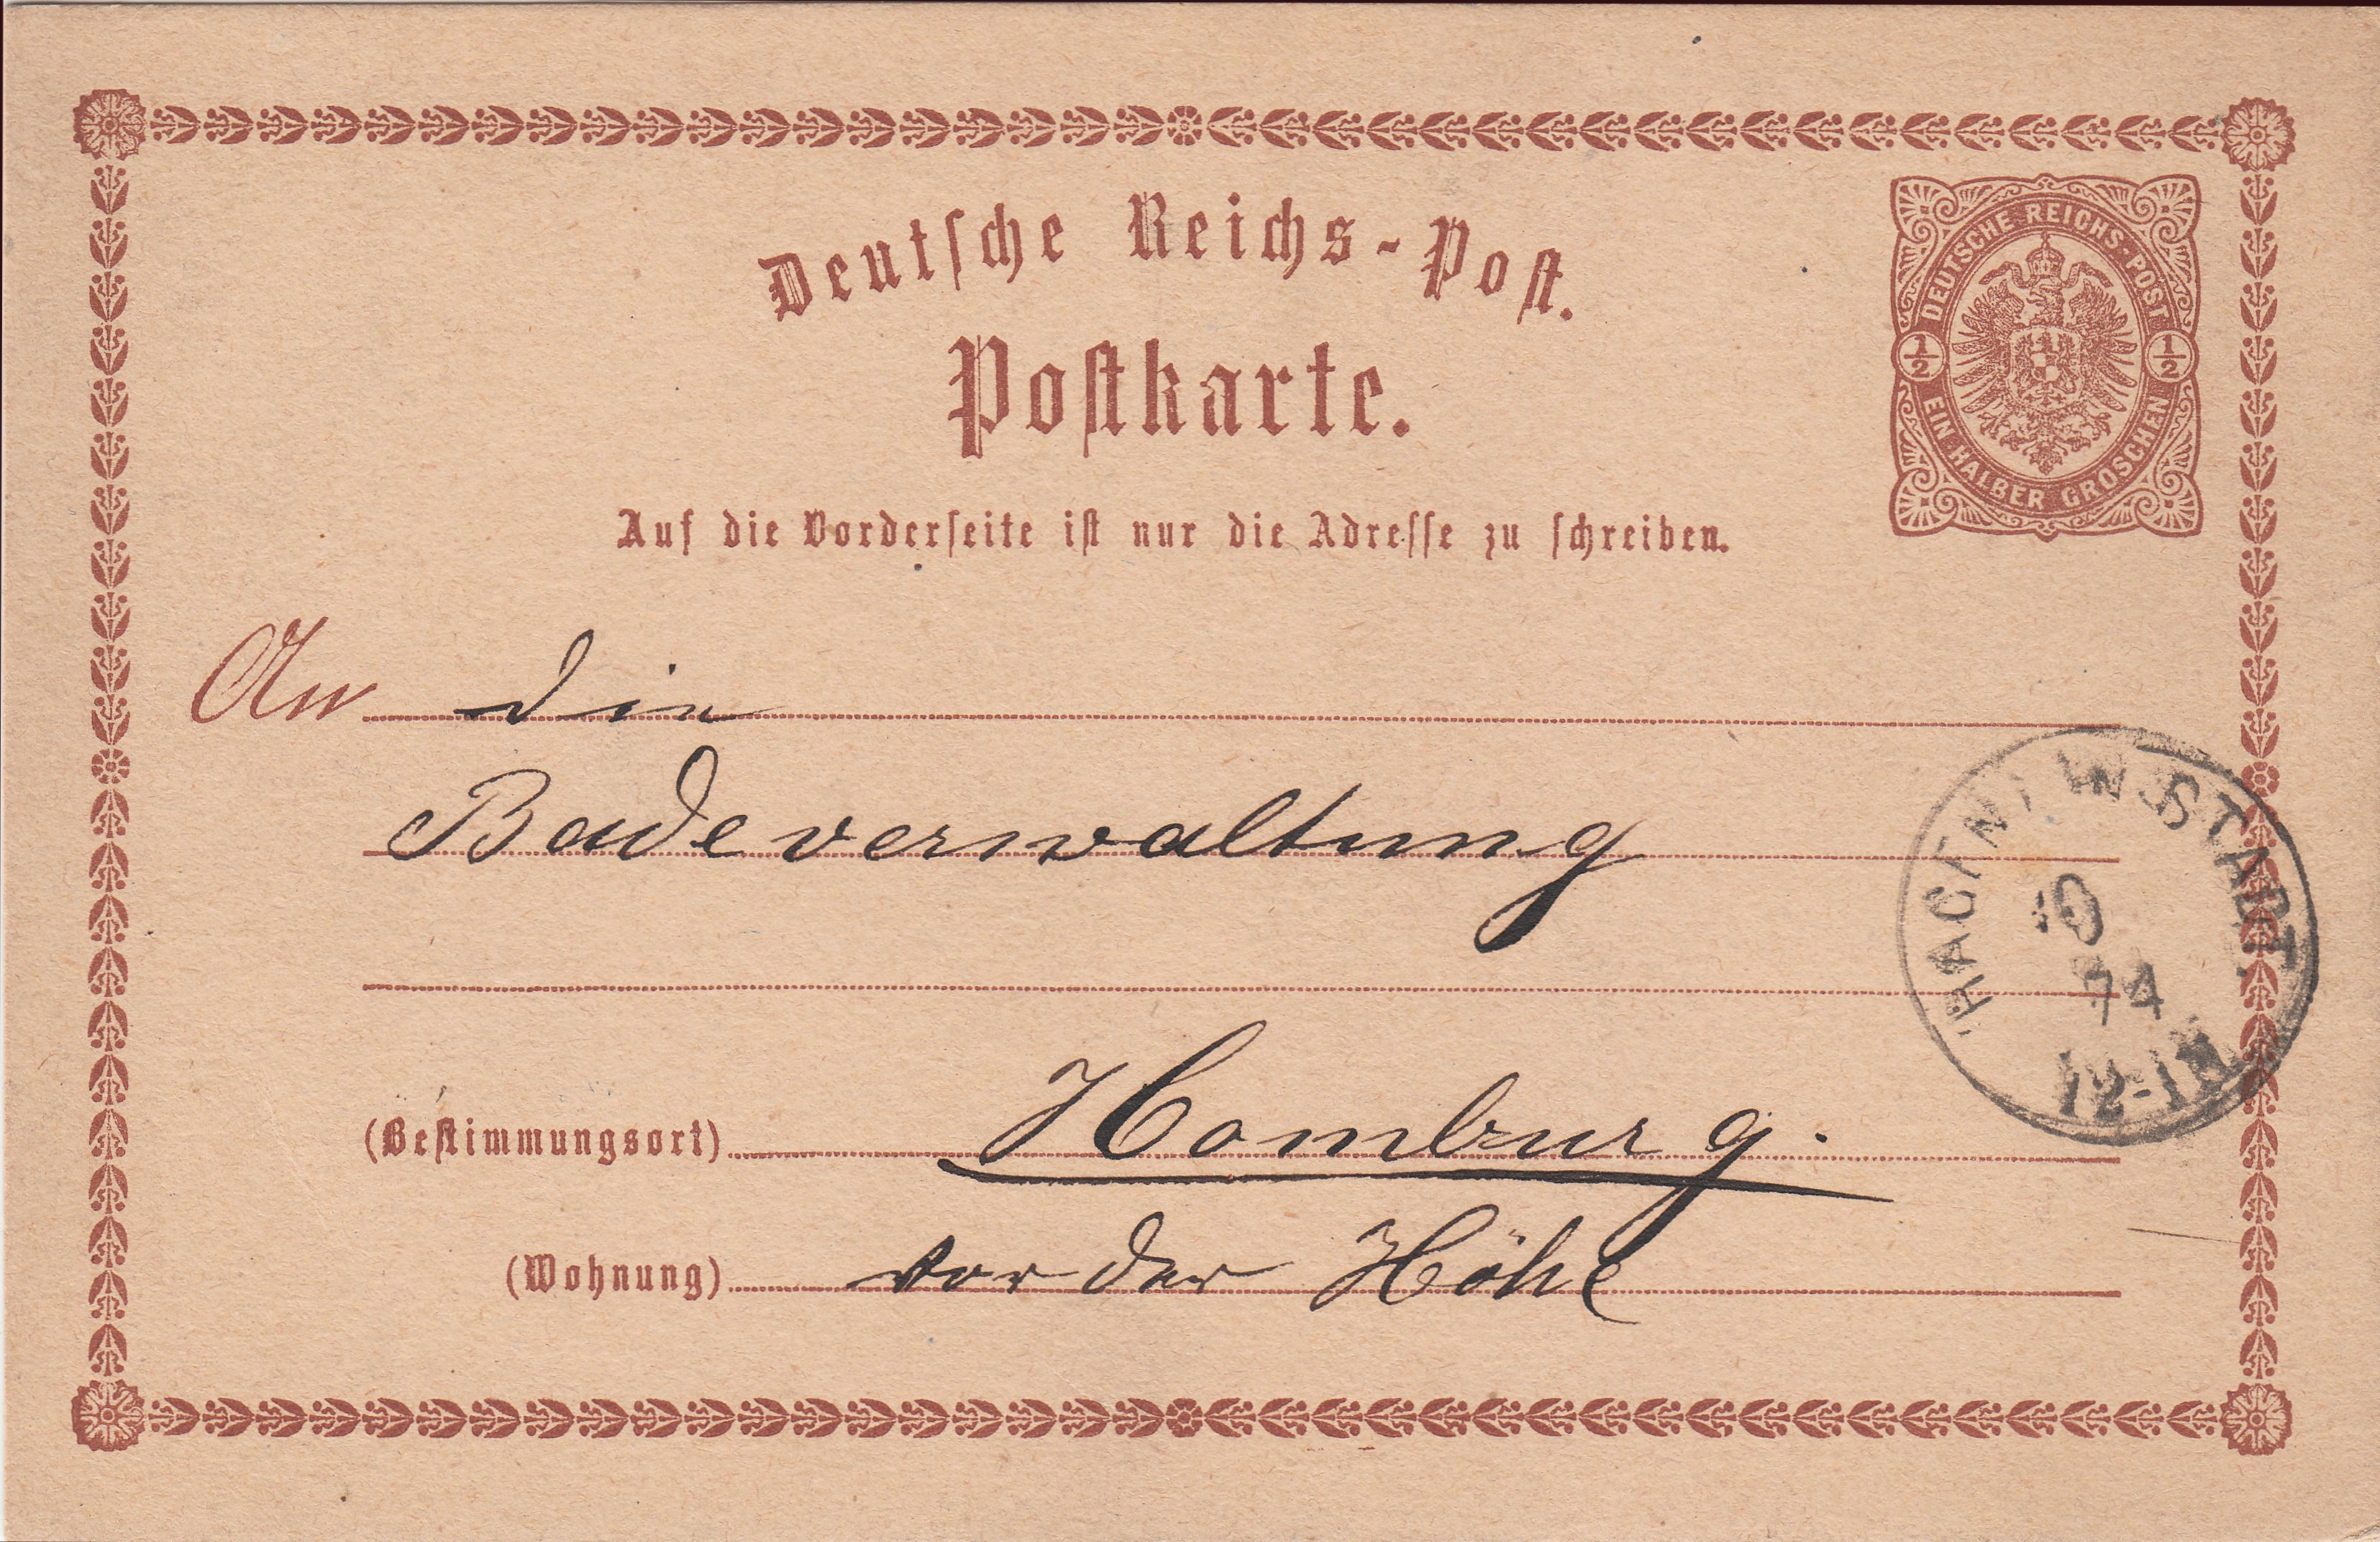 Deutsche Reichs-Post.
Postkarte.
DEUTSCHE REICHS-POST
1/2 1/2
EIN HALBER GROSCHEN
Auf die Vorderseite ist nur die Adresse zu schreiben.
An die
Badeverwaltung
HAGEN I. W. STADT
10
74
12-1N
(Bestimmungsort) Homburg.
(Wohnung) vor der Höhe